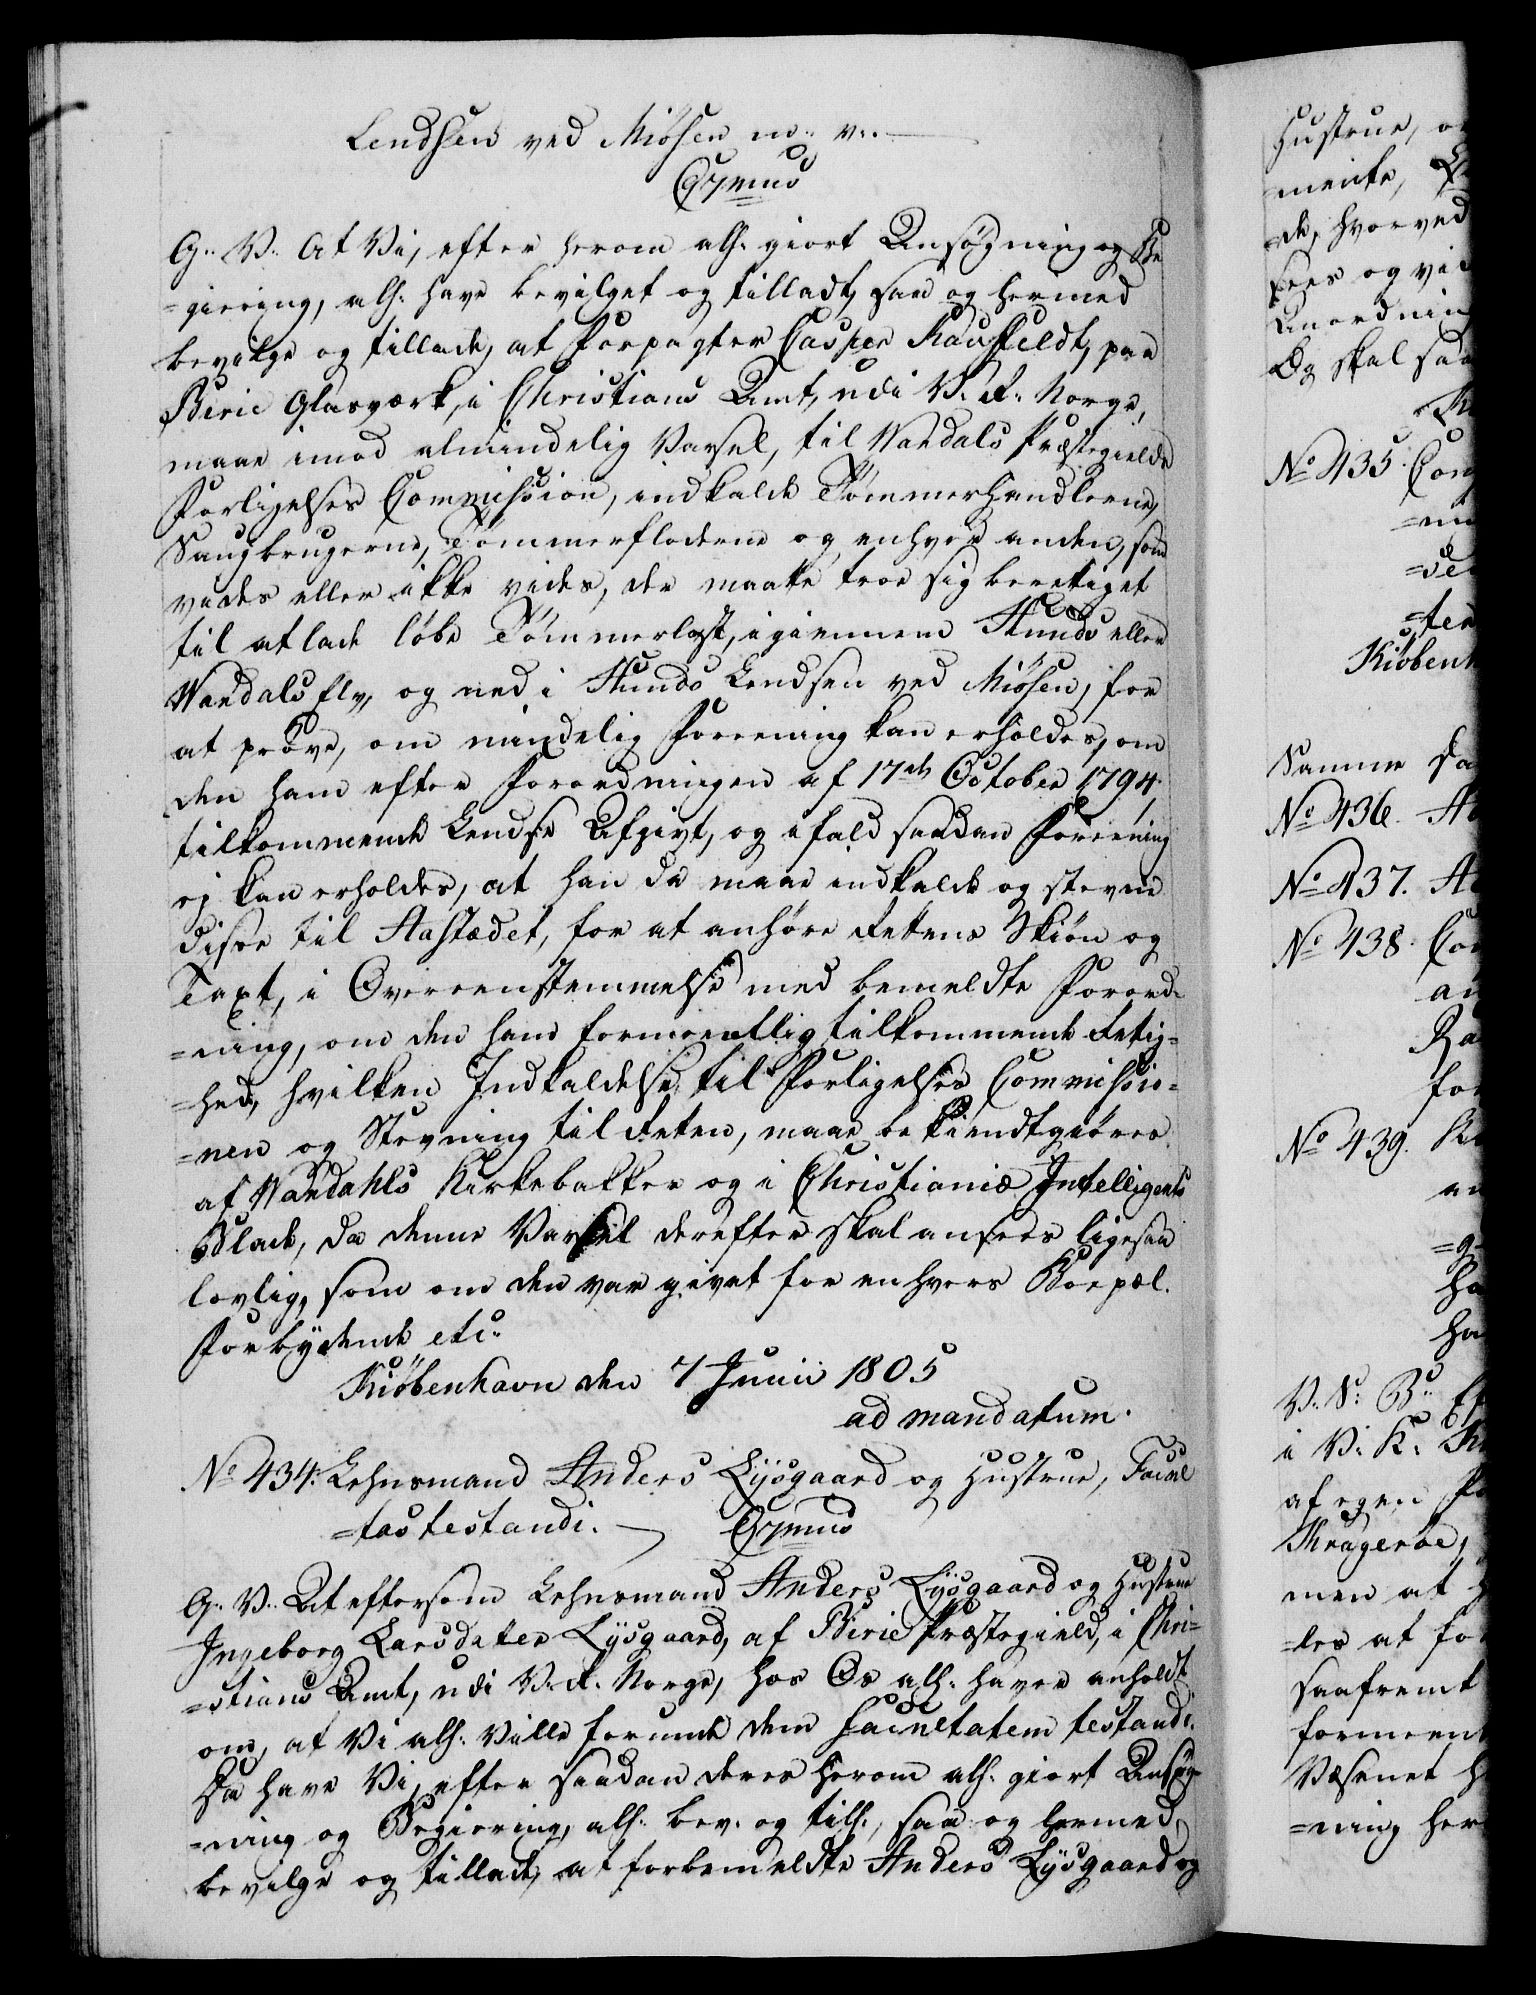 Lendsen ved Miösen m: v:.
C7mus
G: V: At Vi, efter herom alh: giort Ansøgning og Be
=giering, alh: have bevilget og tilladt, saa og hermed
bevilge og tillade, at Forpagter Casper Kauffeldt, paa
Birie Glasværk, i Christians Amt, udi V: R: Norge,
maae imod almindelig Varsel, til Wardals Præstegields
Forligelses Commission, indkalde Tømmerhandlerne,
Saugbrugerne, Tømmerfloderne og enhver anden, som
vides eller ikke vides, der maatte troe sig berettiget
til at lade löbe Tömmerlast, igiennem Hunds eller
Wardals Elv, og ned i Hunds Lendsen ved Miösen, for
at pröve, om mindelig Foreening kan erholdes, om
den ham efter Forordningen af 17de October 1794.
tilkommende Lendse Afgivt, og ifald saadan Foreening
ej kan erholdes, at han da maae indkalde og stevne
disse til Aastædet, for at anhöre Rettens Skiön og
Taxt, i Overeenstemmelse med bemeldte Forord=
=ning, om den ham formeentlig tilkommende Rettig=
=hed, hvilken Indkaldelse til Forligelses Commissio=
=nen og Stevning til Retten, maae bekiendtgiöres
af Wardahls Kirkebakker og i Christianiæ Intelligents
Blade, da denne Varsel derefter skal ansees ligesaa
lovlig, som om den var givet for enhvers Boepæl.
Forbydende etc:
Kiöbenhavn den 7 Junii 1805
ad mandatum.
No 434: Lehnsmand Anders Lysgaard og Hustrue, Facul
=tas testandi. C7mus
G: V: At eftersom Lehnsmand Anders Lysgaard og Hustrue
Ingeborg Larsdatter Lysgaard, af Birie Præstegield, i Chri=
=stians Amt, udi V: R: Norge, hos Os alh: haver anholdt
om, at Vi alh: Ville forunde dem facultatem testandi.
Da have Vi, efter saadan deres herom alh: giort Ansøg=
=ning og Begiering, alh: bev: og till:, saa og hermed
bevilge og tillade, at forbemeldte Anders Lysgaard og
Hustrue,
=mente,
=de, hvorved
sees og
Og skal saa
No 435.
=ten
Kiöbenh
Samme Da
No 436.
No 437.
No 438.
for
No 439.
V: S: B:
i V: K:
af egen
Kragerøe,
men at
=les at fo
saafremt
formeent
Væsenet
=ning her